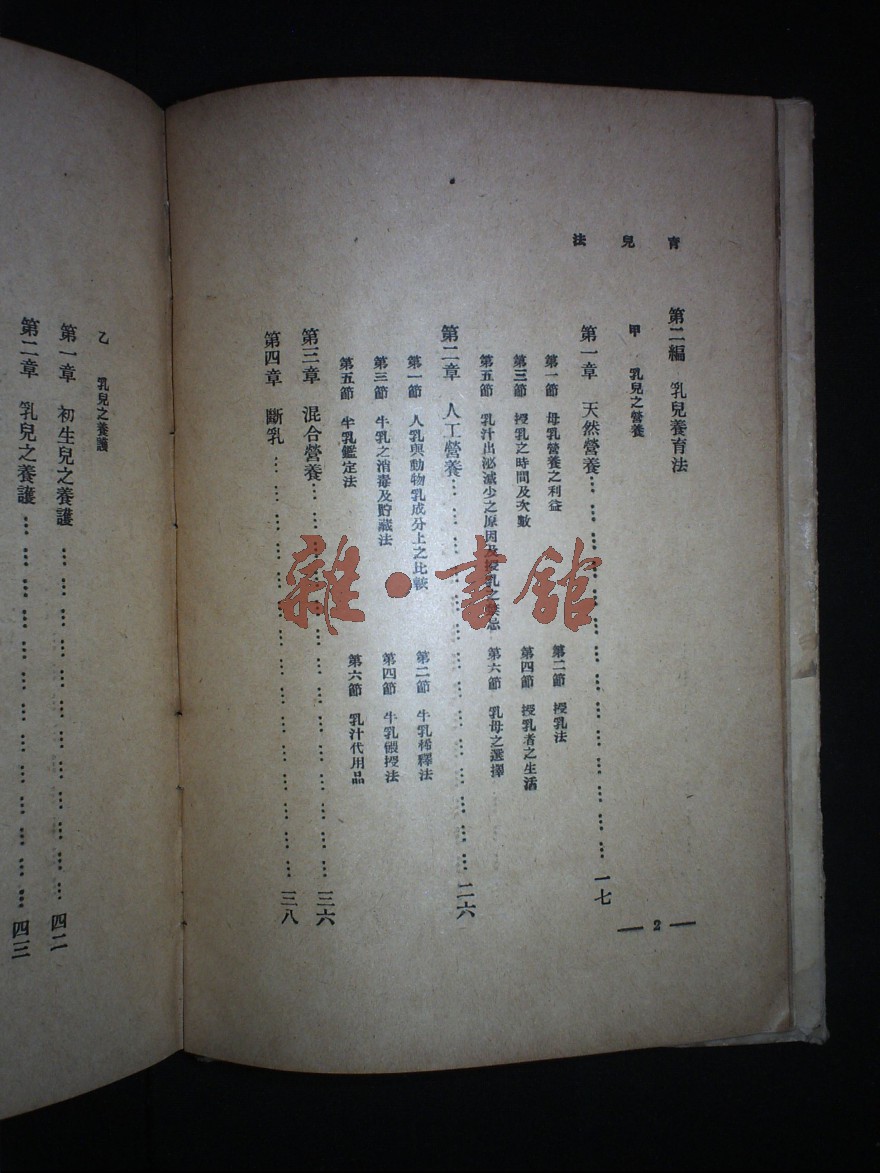 育兒法
第二編 乳兒養育法
甲 乳兒之營養
第一章 天然營養……………………………………一七
第一節 母乳營養之利益
第二節 授乳法
第三節 授乳之時間及次數
第四節 授乳者之生活
第五節 乳汁出泌減少之原因及授乳之禁忌
第六節 乳母之選擇
第二章 人工營養……………………………………二六
第一節 人乳與動物乳成分上之比較
第二節 牛乳稀釋法
第三節 牛乳之消毒及貯藏法
第四節 牛乳餵授法
第五節 牛乳鑑定法
第六節 乳汁代用品
第三章 混合營養……………………………………三六
第四章 斷乳……………………………………三八
2
乙 乳兒之養護
第一章 初生兒之養護……………………………………四二
第二章 乳兒之養護……………………………………四三
雜·書館